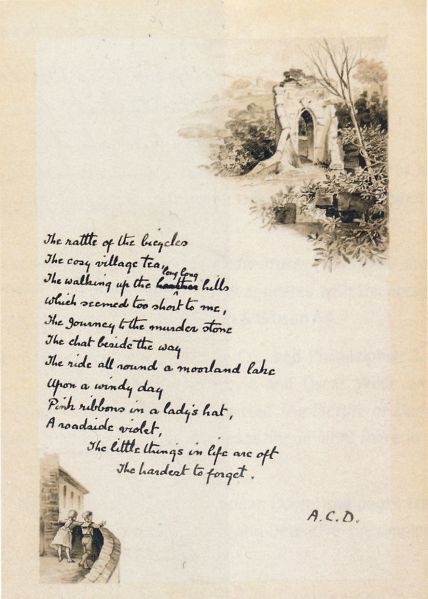 The rattle of the bicycles
The cosy village tea,
The walking up the long long hills
which seemed too short to me,
The Journey to the murder stone
The chat beside the way
The ride all round a moorland lake
Upon a windy day
Pink ribbons in a lady's hat,
A roadside violet,
The little things in life are oft
The hardest to forget.
A.C.D.